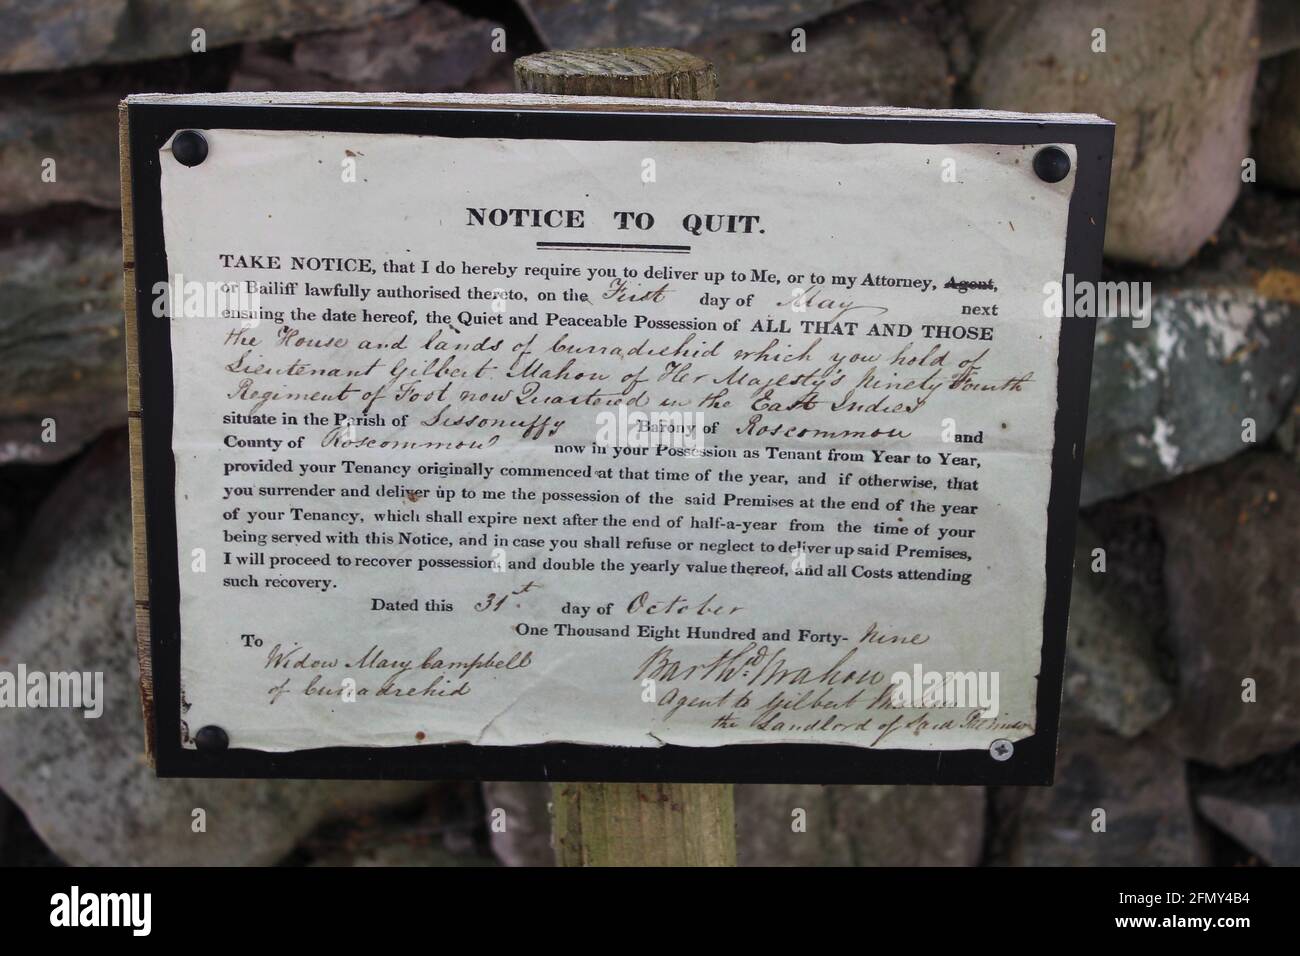 NOTICE TO QUIT.
TAKE NOTICE, that I do hereby require you to deliver up to Me, or to my Attorney, Agent,
or Bailiff lawfully authorised thereto, on the First day of May next
ensuing the date hereof, the Quiet and Peaceable Possession of ALL THAT AND THOSE
the House and lands of Curradrehid which you hold of
Lieutenant Gilbert Mahon of Her Majesty's Ninety Fourth
Regiment of Foot now Quartered in the East Indies
situate in the Parish of Lissonuffy Barony of Roscommon and
County of Roscommon now in your Possession as Tenant from Year to Year,
provided your Tenancy originally commenced at that time of the year, and if otherwise, that
you surrender and deliver up to me the possession of the said Premises at the end of the year
of your Tenancy, which shall expire next after the end of half-a-year from the time of your
being served with this Notice, and in case you shall refuse or neglect to deliver up said Premises,
I will proceed to recover possession, and double the yearly value thereof, and all Costs attending
such recovery.
Dated this 31st. day of October
One Thousand Eight Hundred and Forty- Nine
To
Widow Mary Campbell
of Curradrehid
Barthw Mahon
Agent to Gilbert Mahon
the Landlord of Said Premises
alamy
alamy
Image ID: 2FMY4B4
www.alamy.com